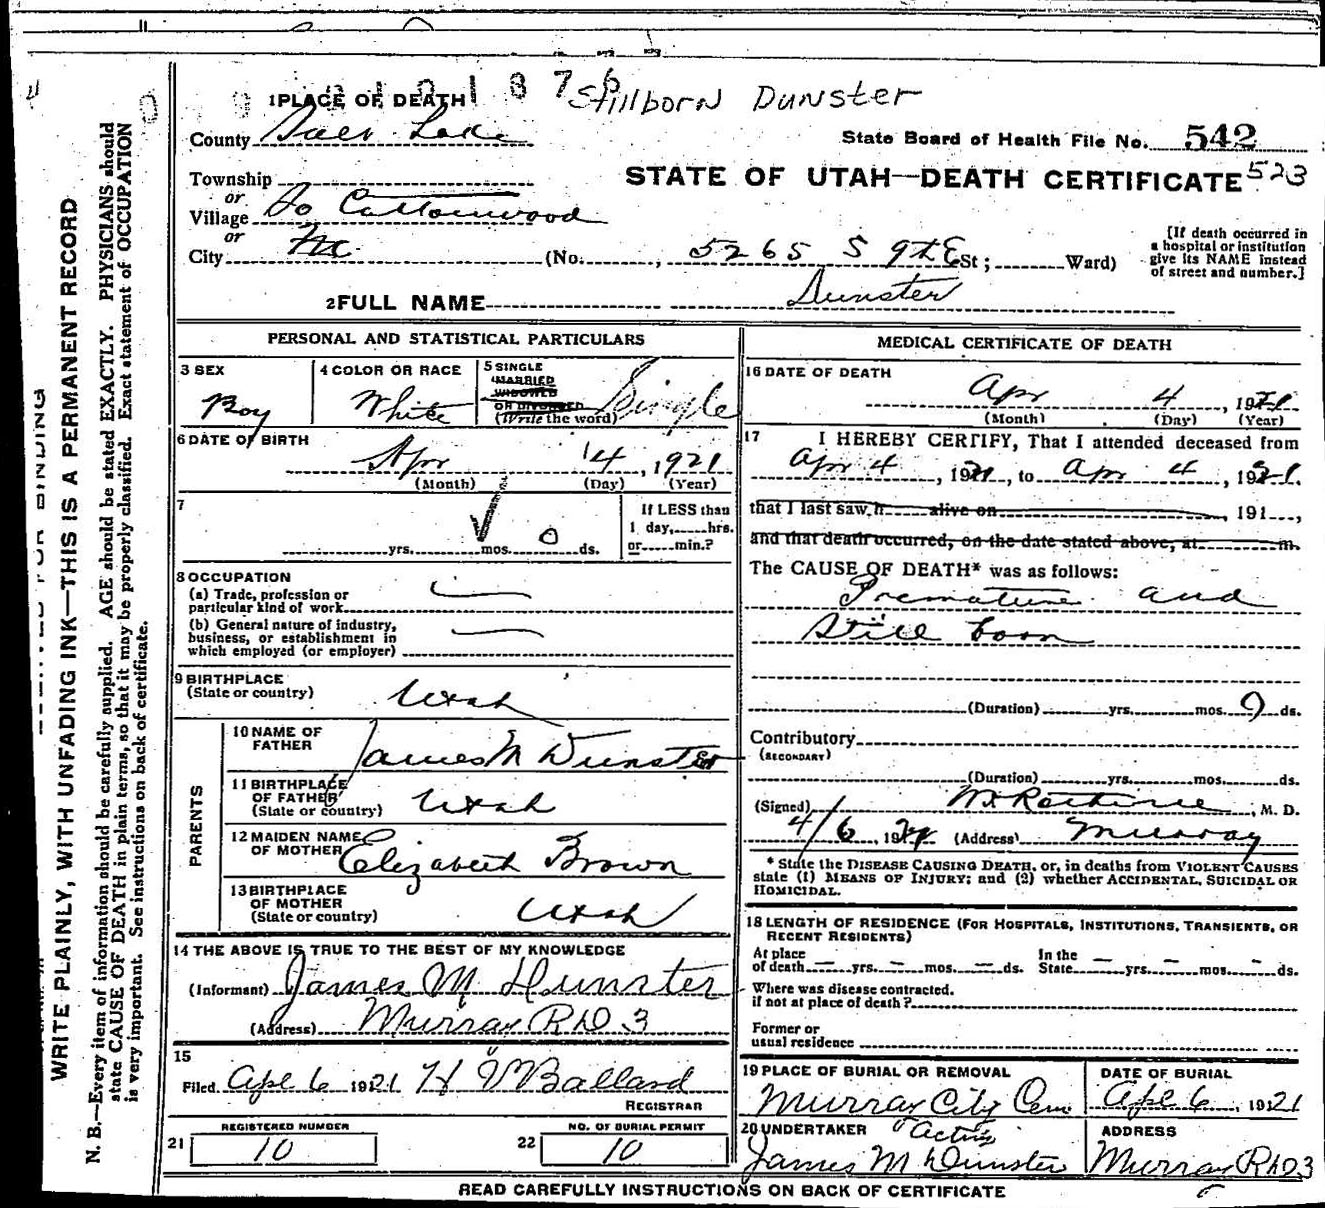 Stillborn Dunster
1 PLACE OF DEATH
County Salt Lake
State Board of Health File No. 542
523
STATE OF UTAH—DEATH CERTIFICATE
Township
or
Village So Cottonwood
or
City
(No. 5265 S 9th E St; Ward)
[If death occurred in
a hospital or institution
give its NAME instead
of street and number.]
2 FULL NAME Dunster
WRITE PLAINLY, WITH UNFADING INK—THIS IS A PERMANENT RECORD
N. B.—Every item of information should be carefully supplied. AGE should be stated EXACTLY. PHYSICIANS should
state CAUSE OF DEATH in plain terms, so that it may be properly classified. Exact statement of OCCUPATION
is very important. See instructions on back of certificate.
PERSONAL AND STATISTICAL PARTICULARS
3 SEX
Boy
4 COLOR OR RACE
White
5 SINGLE
MARRIED
WIDOWED
OR DIVORCED
(Write the word)
Single
6 DATE OF BIRTH
Apr 4, 1921
(Month) (Day) (Year)
7
yrs. mos. 0 ds.
If LESS than
1 day, hrs.
or min.?
8 OCCUPATION
(a) Trade, profession or
particular kind of work
(b) General nature of industry,
business, or establishment in
which employed (or employer)
9 BIRTHPLACE
(State or country)
Utah
PARENTS
10 NAME OF
FATHER
James M Dunster
11 BIRTHPLACE
OF FATHER
(State or country)
Utah
12 MAIDEN NAME
OF MOTHER
Elizabeth Brown
13 BIRTHPLACE
OF MOTHER
(State or country)
Utah
14 THE ABOVE IS TRUE TO THE BEST OF MY KNOWLEDGE
(Informant) James M Dunster
(Address) Murray RD 3
15
Filed Apl 6 1921 H V Ballard
REGISTRAR
21 REGISTERED NUMBER
10
22 NO. OF BURIAL PERMIT
10
MEDICAL CERTIFICATE OF DEATH
16 DATE OF DEATH
Apr 4, 1921
(Month) (Day) (Year)
17 I HEREBY CERTIFY, That I attended deceased from
Apr 4, 1921, to Apr 4, 1921.
that I last saw h alive on , 191 ,
and that death occurred, on the date stated above, at m.
The CAUSE OF DEATH* was as follows:
Premature and
Still born
(Duration) yrs. mos. 0 ds.
Contributory
(SECONDARY)
(Duration) yrs. mos. ds.
(Signed) , M. D.
4/6, 1921 (Address) Murray
* State the DISEASE CAUSING DEATH, or, in deaths from VIOLENT CAUSES
state (1) MEANS OF INJURY; and (2) whether ACCIDENTAL, SUICIDAL OR
HOMICIDAL.
18 LENGTH OF RESIDENCE (FOR HOSPITALS, INSTITUTIONS, TRANSIENTS, OR
RECENT RESIDENTS)
At place
of death — yrs. — mos. — ds.
In the
State — yrs. — mos. — ds.
Where was disease contracted.
if not at place of death?
Former or
usual residence
19 PLACE OF BURIAL OR REMOVAL
Murray City Cem
DATE OF BURIAL
Apl 6, 1921
20 UNDERTAKER Acting
James M Dunster
ADDRESS
Murray RD 3
READ CAREFULLY INSTRUCTIONS ON BACK OF CERTIFICATE